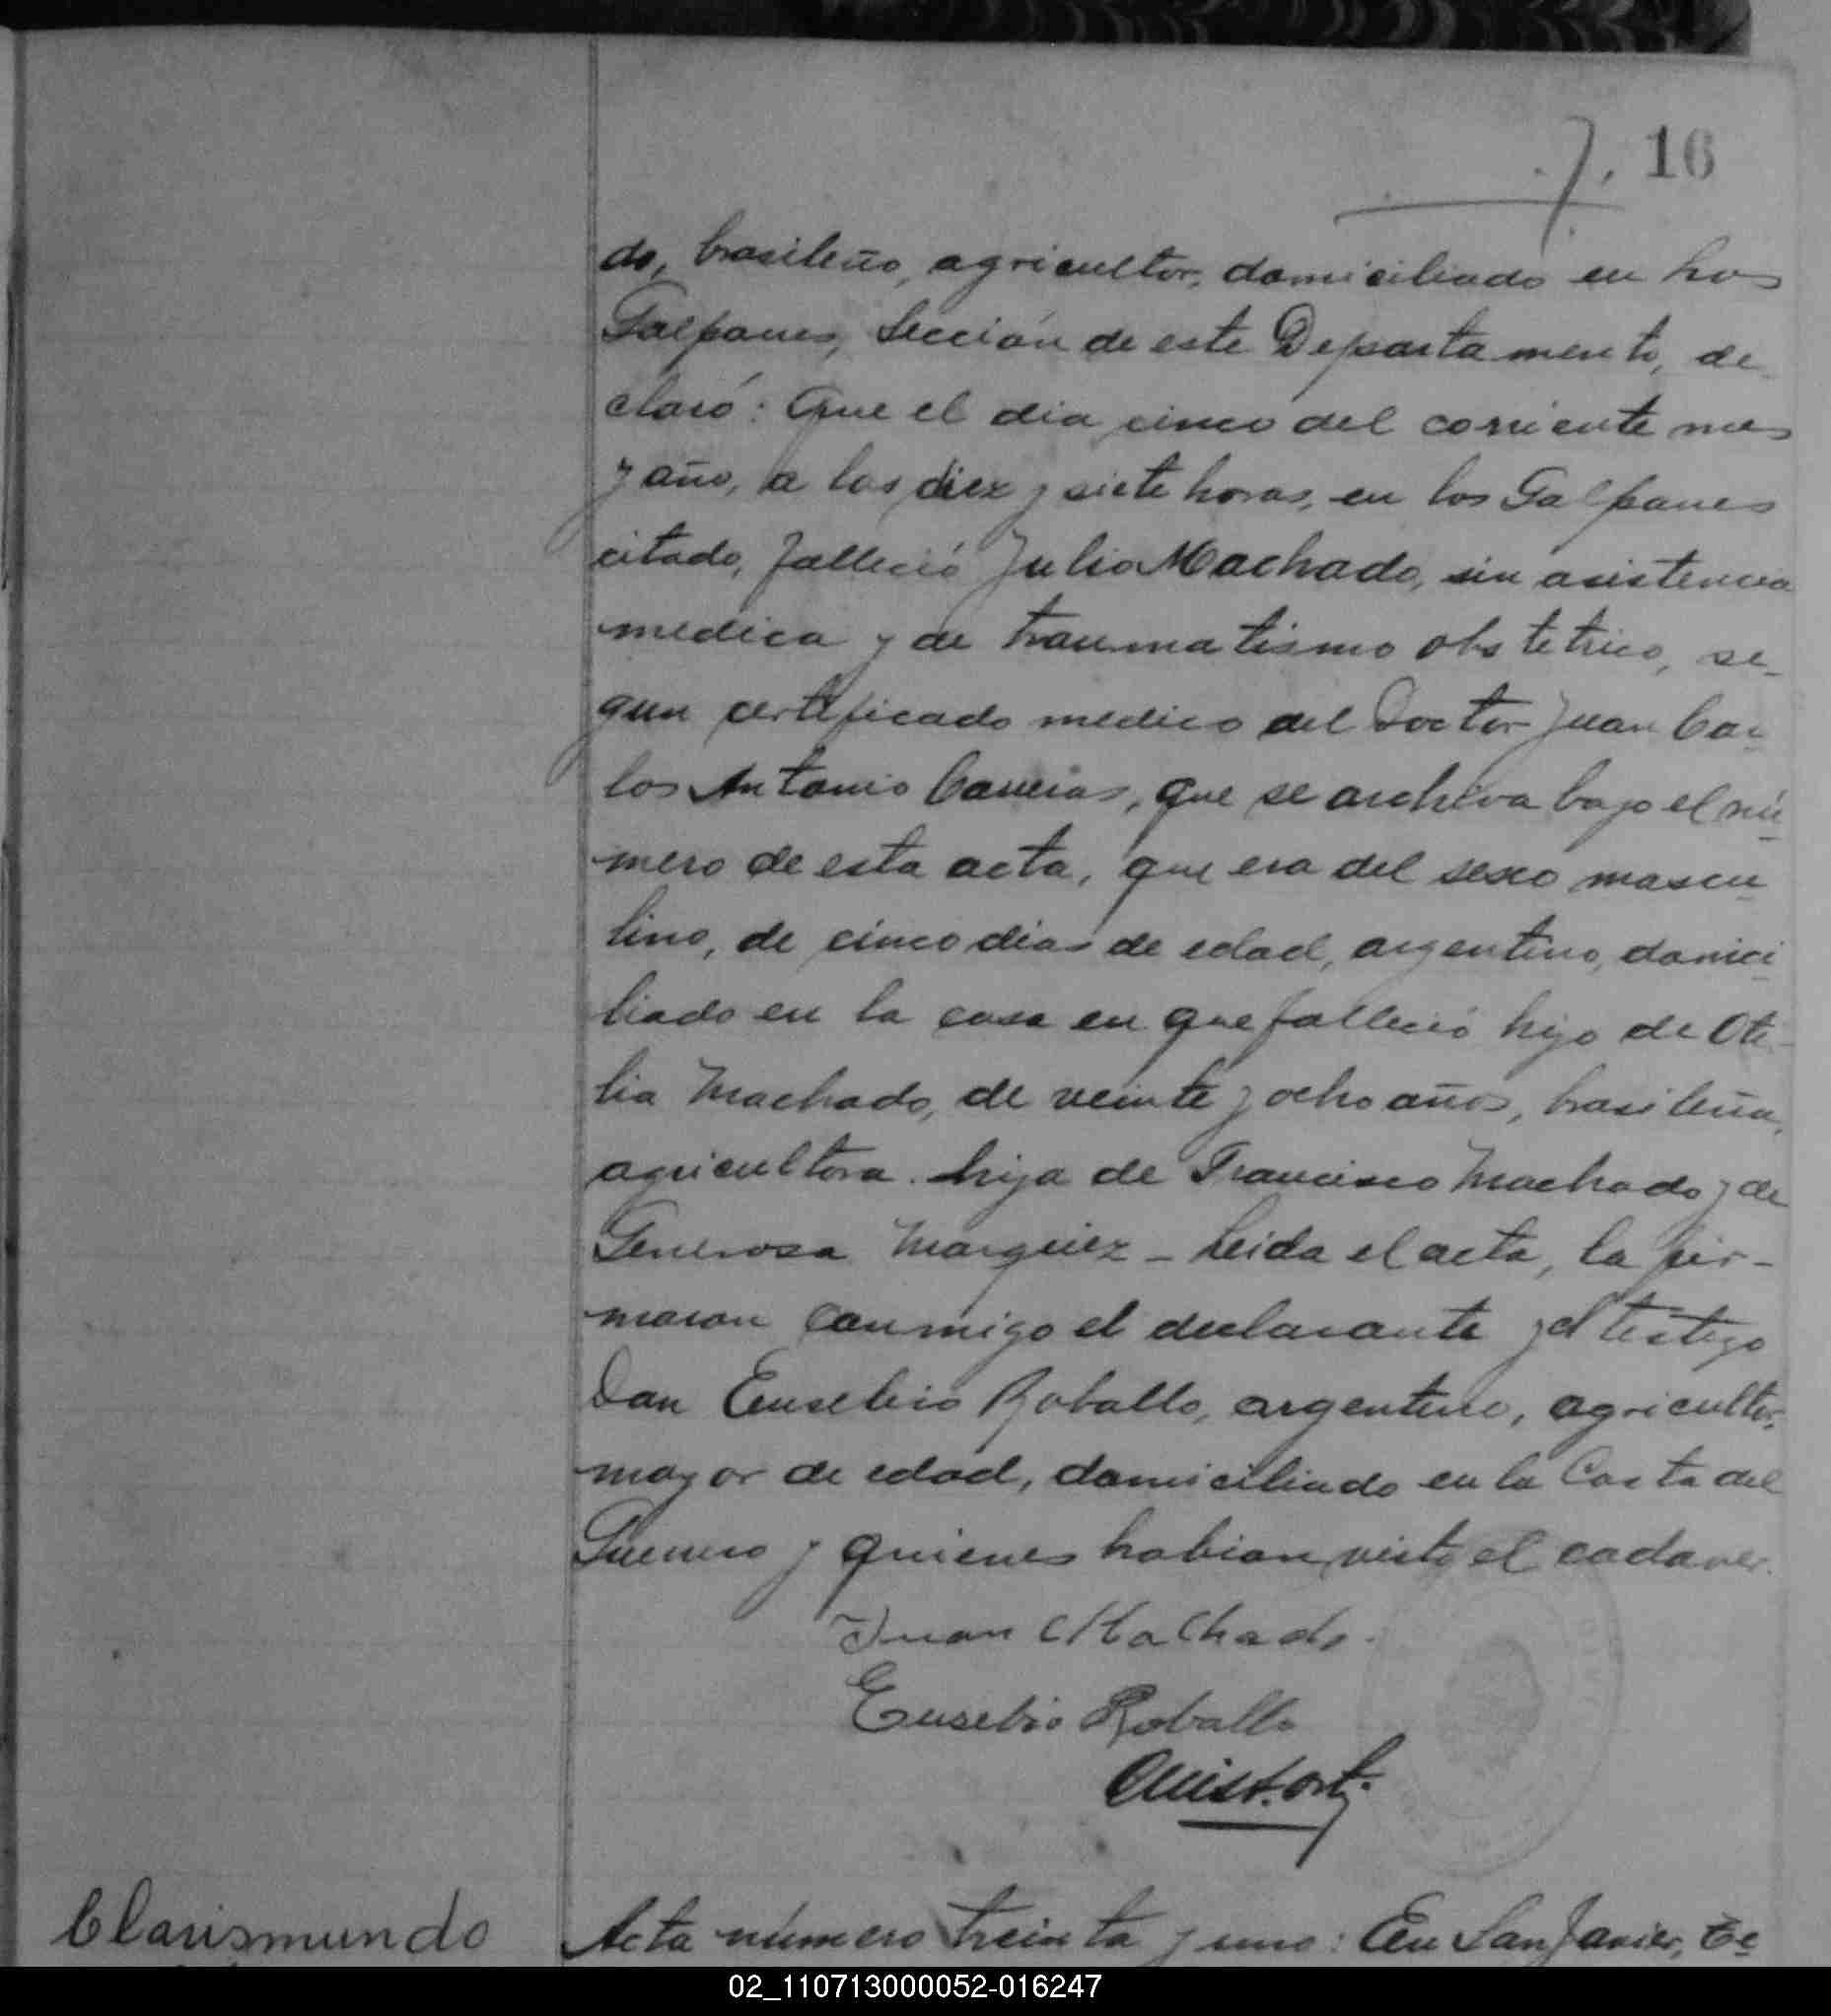 7. 16
do, brasileño, agricultor, domiciliado en Los
Galpones, Sección de este Departamento, de
claró: Que el dia cinco del corriente mes
y año, a las diez y siete horas, en los Galpones
citado, falleció Julio Machado, sin asistencia
medica y de traumatismo obstetrico, se-
gun certificado medico del Doctor Juan Car
los Antonio, que se archiva bajo el nú
mero de esta acta, que era del sexo mascu
lino, de cinco dias de edad, argentino, domici
liado en la casa en que falleció hijo de Oti-
lia Machado, de veinte y ocho años, brasileña,
agricultora. hija de Francisco Machado y de
Generosa Marquez - Leida el acta, la fir-
maron conmigo el declarante y el testigo
Don Eusebio Roballo, argentino, agricultor,
mayor de edad, domiciliado en la Costa del
y quienes habian visto el cadaver.
Juan Machado.
Eusebio Roballo
Clarismundo
Acta número treinta y uno: En San Javier, Te
02_110713000052-016247